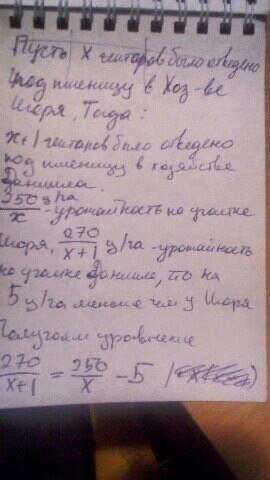 Пусть x гектаров было отведено
под пшеницу в хоз-ве
Игоря, Тогда:
x+1 гектаров было отведено
под пшеницу в хозяйстве
Данила.
250/x ц/га - урожайность на участке
Игоря, 270/x+1 ц/га - урожайность
на участке Данила, что на
5 ц/га меньше чем у Игоря
Получаем уравнение
270/x+1 = 250/x - 5